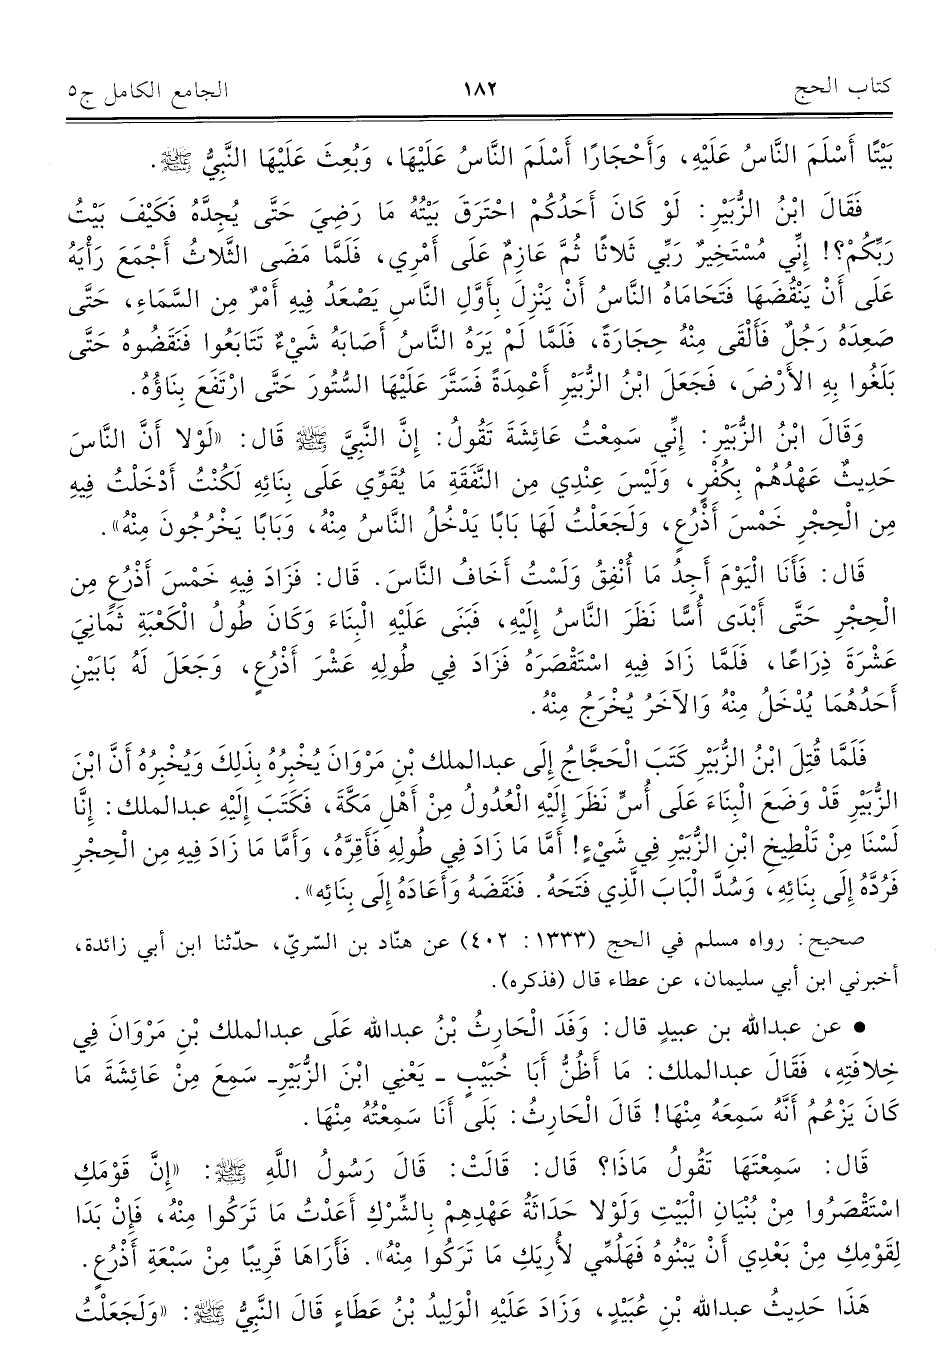 كتاب الحج ١٨٢ الجامع الكامل ج٥
بَيْتًا أَسْلَمَ النَّاسُ عَلَيْهِ، وَأَحْجَارًا أَسْلَمَ النَّاسُ عَلَيْهَا، وَبُعِثَ عَلَيْهَا النَّبِيُّ ﷺ.
فَقَالَ ابْنُ الزُّبَيْرِ: لَوْ كَانَ أَحَدُكُمْ احْتَرَقَ بَيْتُهُ مَا رَضِيَ حَتَّى يُجِدَّهُ فَكَيْفَ بَيْتُ
رَبِّكُمْ؟! إِنِّي مُسْتَخِيرٌ رَبِّي ثَلاثًا ثُمَّ عَازِمٌ عَلَى أَمْرِي، فَلَمَّا مَضَى الثَّلاثُ أَجْمَعَ رَأْيَهُ
عَلَى أَنْ يَنْقُضَهَا فَتَحَامَاهُ النَّاسُ أَنْ يَنْزِلَ بِأَوَّلِ النَّاسِ يَصْعَدُ فِيهِ أَمْرٌ مِن السَّمَاءِ، حَتَّى
صَعِدَهُ رَجُلٌ فَأَلْقَى مِنْهُ حِجَارَةً، فَلَمَّا لَمْ يَرَهُ النَّاسُ أَصَابَهُ شَيْءٌ تَتَابَعُوا فَنَقَضُوهُ حَتَّى
بَلَغُوا بِهِ الأَرْضَ، فَجَعَلَ ابْنُ الزُّبَيْرِ أَعْمِدَةً فَسَتَّرَ عَلَيْهَا السُّتُورَ حَتَّى ارْتَفَعَ بِنَاؤُهُ.
وَقَالَ ابْنُ الزُّبَيْرِ: إِنِّي سَمِعْتُ عَائِشَةَ تَقُولُ: إِنَّ النَّبِيَّ ﷺ قَالَ: «لَوْلا أَنَّ النَّاسَ
حَدِيثٌ عَهْدُهُمْ بِكُفْرٍ، وَلَيْسَ عِنْدِي مِن النَّفَقَةِ مَا يُقَوِّي عَلَى بِنَائِهِ لَكُنْتُ أَدْخَلْتُ فِيهِ
مِن الْحِجْرِ خَمْسَ أَذْرُعٍ، وَلَجَعَلْتُ لَهَا بَابًا يَدْخُلُ النَّاسُ مِنْهُ، وَبَابًا يَخْرُجُونَ مِنْهُ».
قَالَ: فَأَنَا الْيَوْمَ أَجِدُ مَا أُنْفِقُ وَلَسْتُ أَخَافُ النَّاسَ. قَالَ: فَزَادَ فِيهِ خَمْسَ أَذْرُعٍ مِن
الْحِجْرِ حَتَّى أَبْدَى أُسًّا نَظَرَ النَّاسُ إِلَيْهِ، فَبَنَى عَلَيْهِ الْبِنَاءَ وَكَانَ طُولُ الْكَعْبَةِ ثَمَانِيَ
عَشْرَةَ ذِرَاعًا، فَلَمَّا زَادَ فِيهِ اسْتَقْصَرَهُ فَزَادَ فِي طُولِهِ عَشْرَ أَذْرُعٍ، وَجَعَلَ لَهُ بَابَيْنِ
أَحَدُهُمَا يُدْخَلُ مِنْهُ وَالآخَرُ يُخْرَجُ مِنْهُ.
فَلَمَّا قُتِلَ ابْنُ الزُّبَيْرِ كَتَبَ الْحَجَّاجُ إِلَى عبدالملك بْنِ مَرْوَانَ يُخْبِرُهُ بِذَلِكَ وَيُخْبِرُهُ أَنَّ ابْنَ
الزُّبَيْرِ قَدْ وَضَعَ الْبِنَاءَ عَلَى أُسٍّ نَظَرَ إِلَيْهِ الْعُدُولُ مِنْ أَهْلِ مَكَّةَ، فَكَتَبَ إِلَيْهِ عبدالملك: إِنَّا
لَسْنَا مِنْ تَلْطِيخِ ابْنِ الزُّبَيْرِ فِي شَيْءٍ! أَمَّا مَا زَادَ فِي طُولِهِ فَأَقِرَّهُ، وَأَمَّا مَا زَادَ فِيهِ مِن الْحِجْرِ
فَرُدَّهُ إِلَى بِنَائِهِ، وَسُدَّ الْبَابَ الَّذِي فَتَحَهُ. فَنَقَضَهُ وَأَعَادَهُ إِلَى بِنَائِه».
صحيح: رواه مسلم في الحج (١٣٣٣: ٤٠٢) عن هنّاد بن السّريّ، حدّثنا ابن أبي زائدة،
أخبرني ابن أبي سليمان، عن عطاء قال (فذكره).
• عن عبدالله بن عبيدٍ قال: وَفَدَ الْحَارِثُ بْنُ عبدالله عَلَى عبدالملك بْنِ مَرْوَانَ فِي
خِلافَتِهِ، فَقَالَ عبدالملك: مَا أَظُنُّ أَبَا خُبَيْبٍ - يَعْنِي ابْنَ الزُّبَيْرِ- سَمِعَ مِنْ عَائِشَةَ مَا
كَانَ يَزْعُمُ أَنَّهُ سَمِعَهُ مِنْهَا! قَالَ الْحَارِثُ: بَلَى أَنَا سَمِعْتُهُ مِنْهَا.
قَالَ: سَمِعْتَهَا تَقُولُ مَاذَا؟ قَالَ: قَالَتْ: قَالَ رَسُولُ اللَّهِ ﷺ: «إِنَّ قَوْمَكِ
اسْتَقْصَرُوا مِنْ بُنْيَانِ الْبَيْتِ وَلَوْلا حَدَاثَةُ عَهْدِهِمْ بِالشِّرْكِ أَعَدْتُ مَا تَرَكُوا مِنْهُ، فَإِنْ بَدَا
لِقَوْمِكِ مِنْ بَعْدِي أَنْ يَبْنُوهُ فَهَلُمِّي لأُرِيَكِ مَا تَرَكُوا مِنْهُ». فَأَرَاهَا قَرِيبًا مِنْ سَبْعَةِ أَذْرُعٍ.
هَذَا حَدِيثُ عبدالله بْنِ عُبَيْدٍ، وَزَادَ عَلَيْهِ الْوَلِيدُ بْنُ عَطَاءٍ قَالَ النَّبِيُّ ﷺ: «وَلَجَعَلْتُ